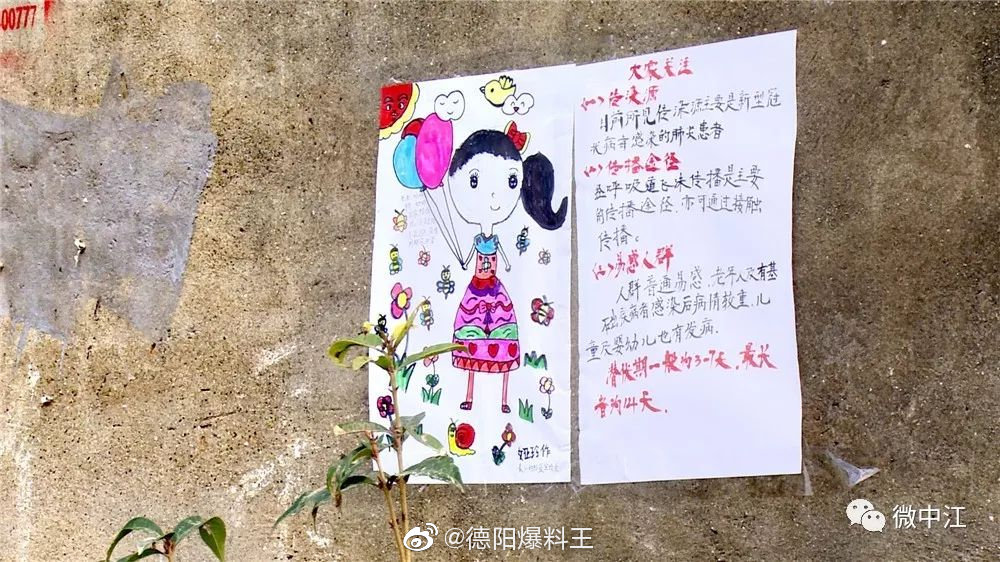 00777
大家关注
传染源
目前所见传染源主要是新型冠
状病毒感染的肺炎患者
传播途径
经呼吸道飞沫传播是主要
的传播途径，亦可通过接触
传播。
易感人群
人群普通易感，老年人及有基
础疾病者感染后病情较重，儿
童及婴幼儿也有发病.
潜伏期一般为3-7天，最长
者为14天.
作
@德阳爆料王
微中江